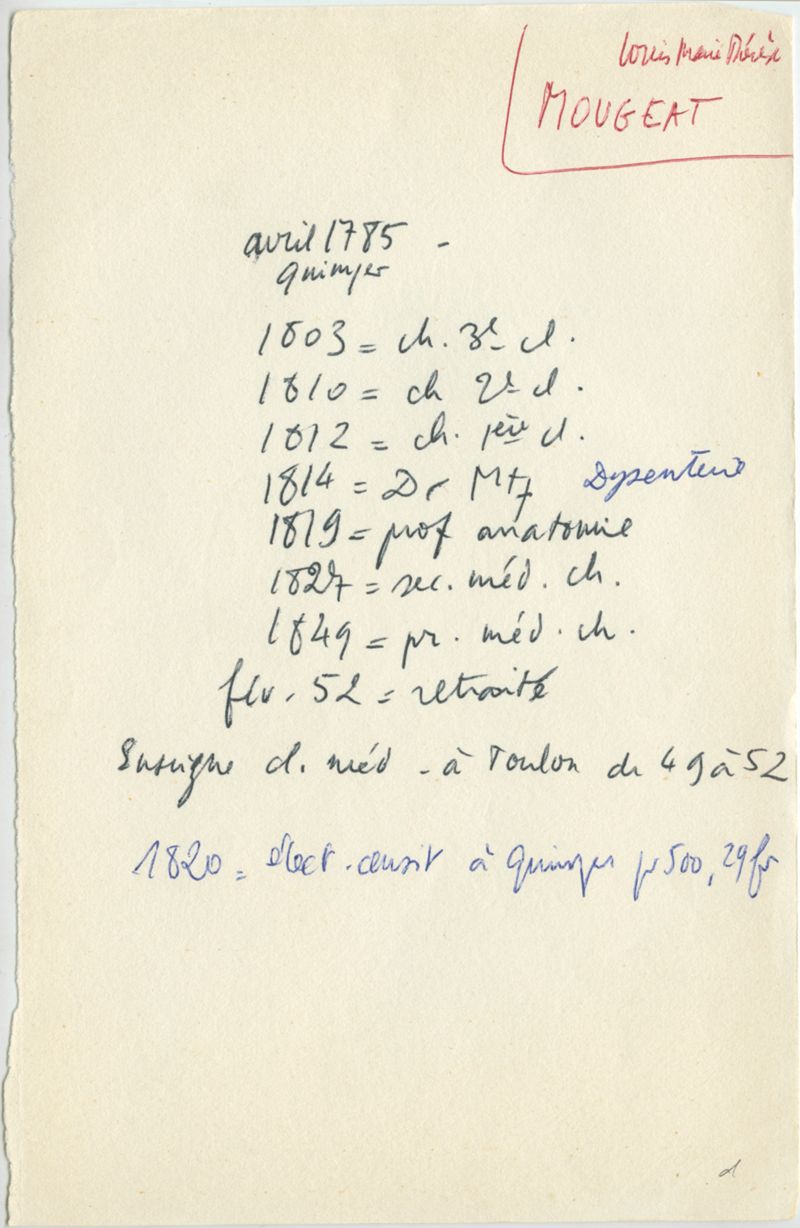 Louis Marie Désiré
MOUGEAT
avril 1785 -
Quimper
1803 = ch. 3e cl.
1810 = ch 2e cl.
1812 = ch. 1ère cl.
1814 = Dr Mtp Dysenterie
1819 = prof anatomie
1827 = sec. méd. ch.
1849 = pr. méd. ch.
fév. 52 = retraité
Enseigne cl. méd - à Toulon de 49 à 52
1820 = élect. censit à Quimper pr 500,29 fr